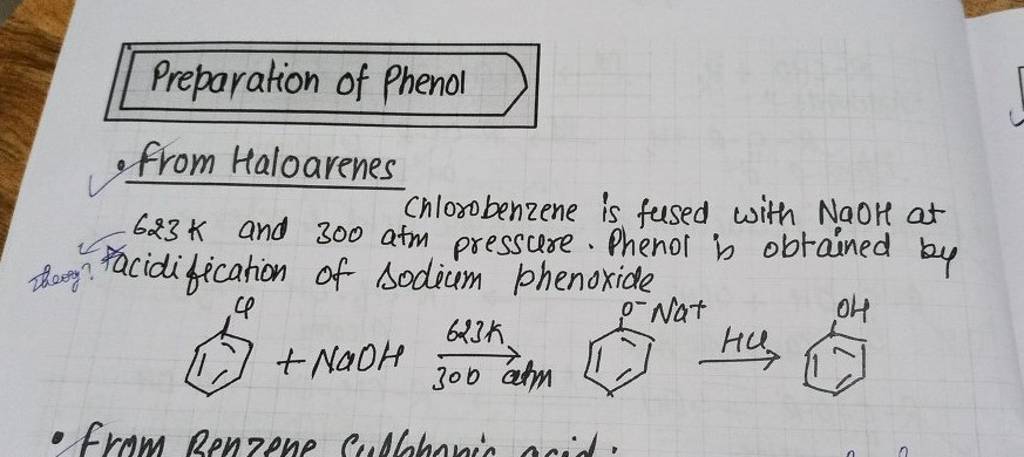 Preparation of Phenol
• From Haloarenes
Chlorobenzene is fused with NaOH at
623K and 300 atm pressure. Phenol is obtained by
Theory? acidification of sodium phenoxide
Cl O⁻Na+ OH
+ NaOH 623K 300 atm HCl
• From Benzene Sulphonic acid: